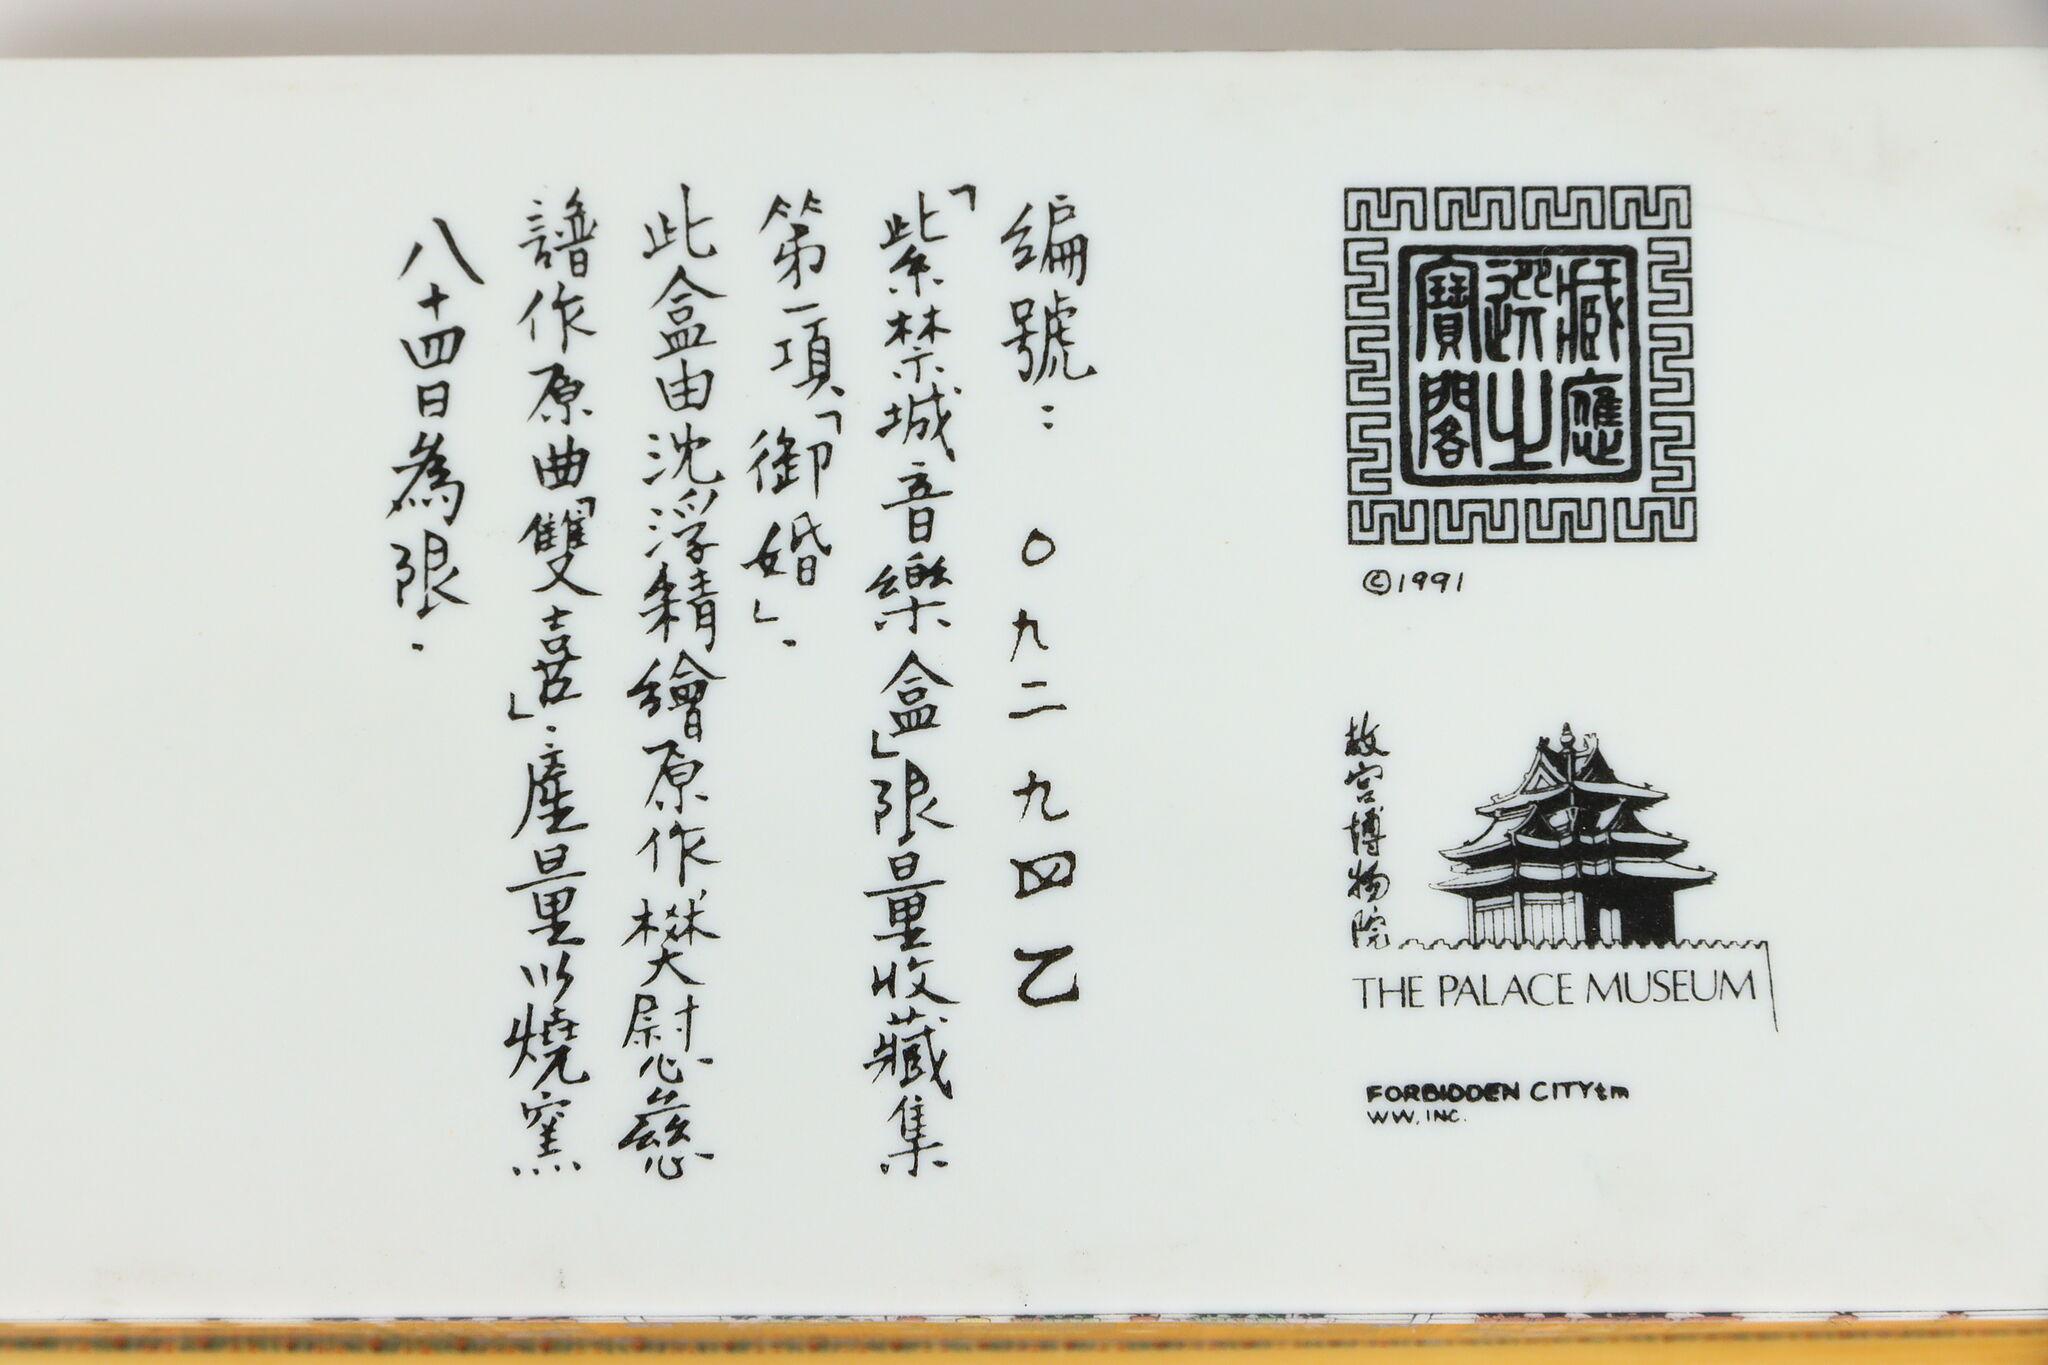 應
之
寶閣
©1991
故宮博物院
THE PALACE MUSEUM
FORBIDDEN CITYtm
WW, INC.
編號：〇九二九四乙
「紫禁城音樂盒」限量收藏集
第一項、「御婚」．
此盒由沈浮精繪原作樊慰慈
譜作原曲「雙喜」．產量以燒窯
八十四日為限．